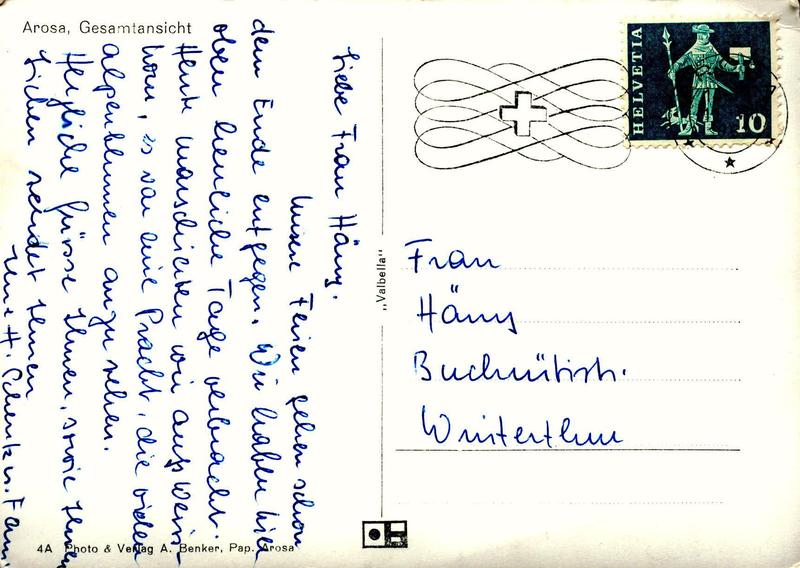 Arosa, Gesamtansicht
Liebe Frau Häny.
Unsere Ferien gehen schon
dem Ende entgegen. Wir haben hier
oben herrliche Tage verbracht.
Heute marschierten wir aufs Weiss-
horn, es war eine Pracht, die vielen
Alpenblumen anzusehen.
Herzliche Grüsse Ihnen, sowie Ihren
Lieben sendet Ihnen
H. Schenk u. Fam.
4A Photo & Verlag A. Benker, Pap. Arosa
„Valbella"
HELVETIA
10
Frau
Häny
Winterthur